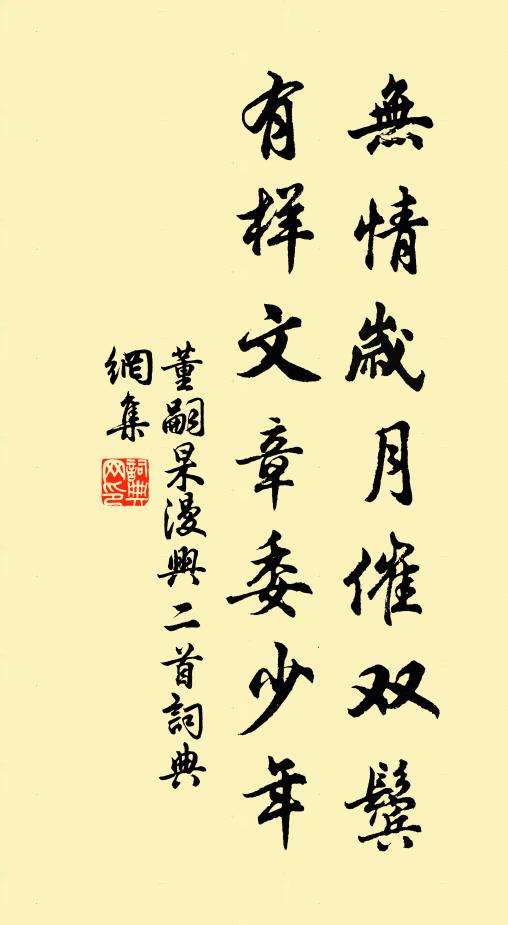 無情歲月催双鬢
有样文章委少年
董嗣杲漫興二首詞典
網集
詞典网印